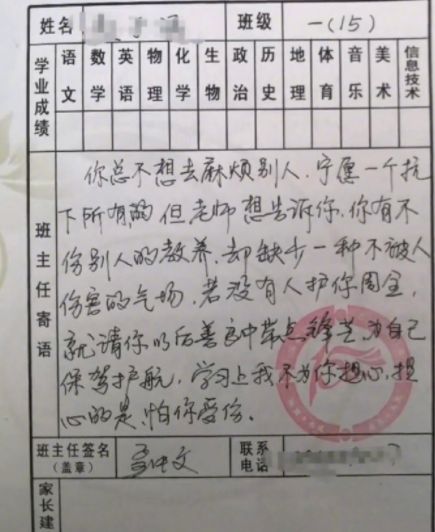 姓名 班级 一(15)
学业成绩 语文 数学 英语 物理 化学 生物 政治 历史 地理 体育 音乐 美术 信息技术
班主任寄语
你总不想去麻烦别人,宁愿一个抗
下所有的但老师想告诉你,你有不
伤别人的教养,却缺少一种不被人
伤害的气场,若没有人护你周全,
就请你以后善良中带点锋芒,为自己
保驾护航,学习上我不为你担心,担
心的是,怕你受伤。
班主任签名(盖章) 文 联系电话
家长建